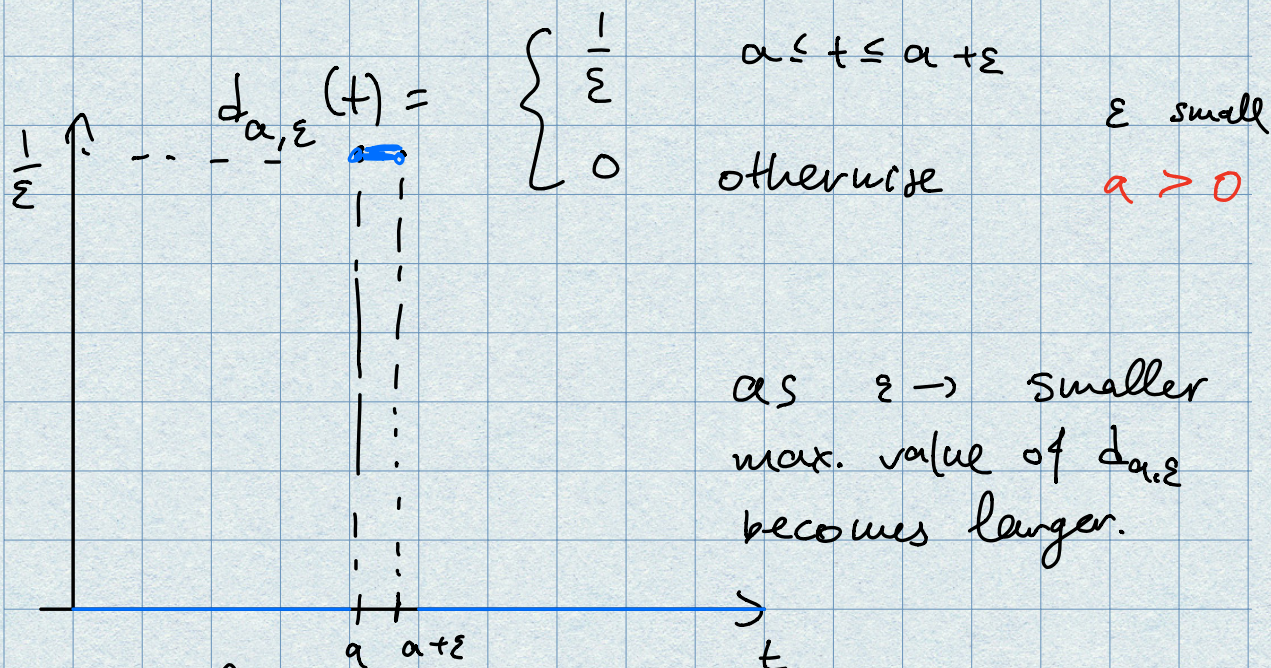 d_{a,ε}(t) = { 1/ε   a ≤ t ≤ a + ε
0   otherwise
ε small
a > 0
1/ε
as ε → smaller
max. value of d_{a,ε}
becomes larger.
a   a+ε
t